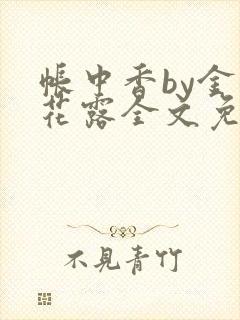 帐中香by金
花露全文免
不見青竹